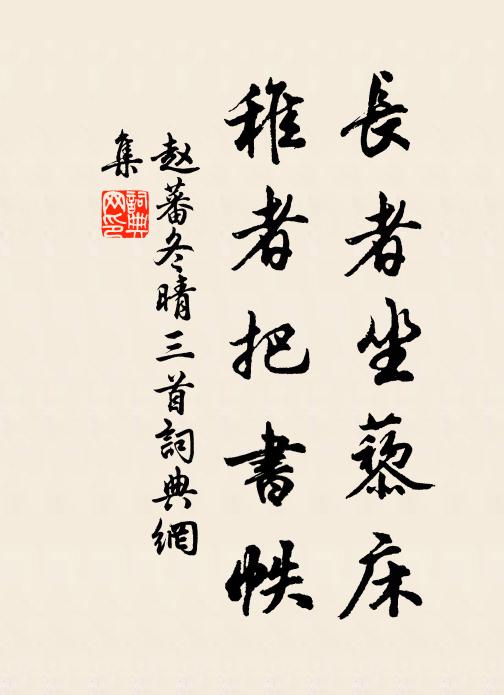 長者坐藜床
稚者把書帙
赵蕃冬晴三首詞典網
集
詞典
网印